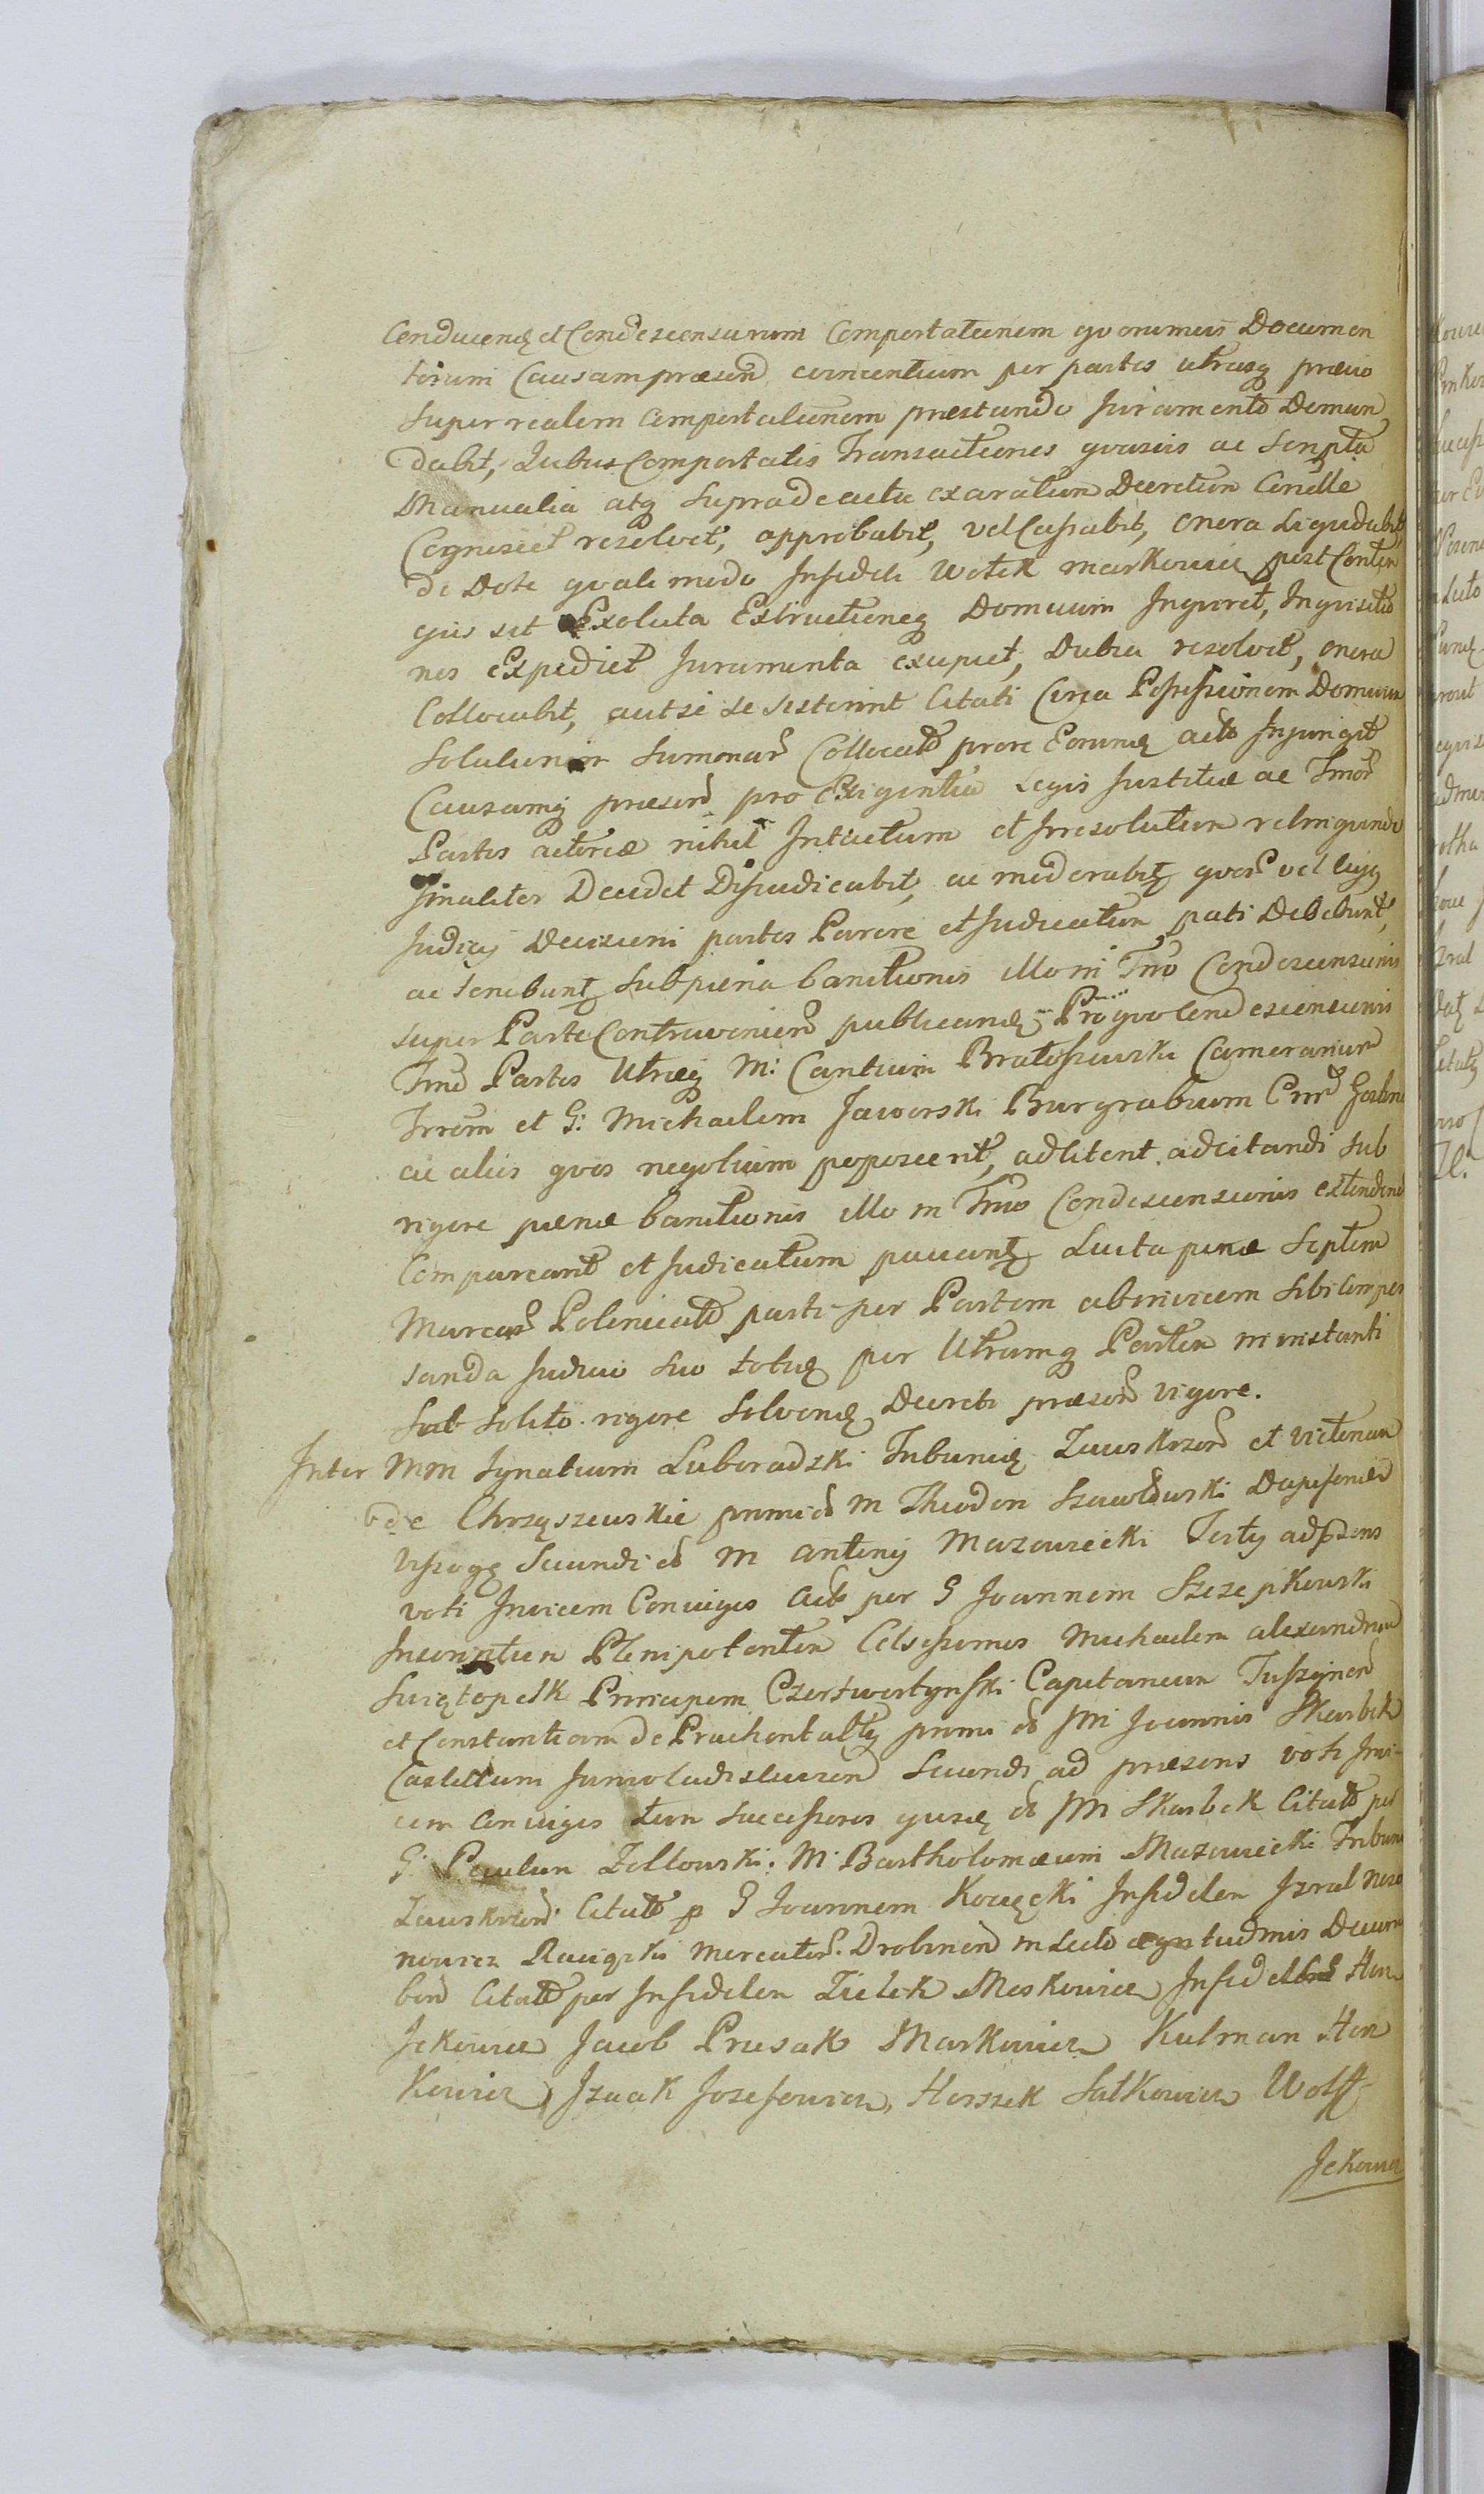 Conducend et Condescensurum Comportationem quorumvis Documen
torum Causam præsen concernentium per partes utrasq prævio
super realem comportationem præstando Juramento Deman
dabit, Quibus Comportatis Transactiones quasvis ac Scripta
Manualia atq supradeacta exaratum Decretum Concille
Cognoscet resolvet, approbabit, vel Cassabit, onera Liquidabit
de Dote quali modo Infideli Wolek Markowic post Conten
giis sit Exoluta Extructioneq Domuum Inquiret, Inquisitio
nes Expediet Juramenta excipiet, Dubia resolvet, onera
Collocabit, aut si se sisterint Citati Circa Possessionem Domuum
Solutum Sumonar Collocato prore Eorund acto Injungit
Causamq præsen pro Exigentia Legis Justitiæ ac Tmor
Partis actoreæ nihil Intactum et Irresolutum relinquendo
finaliter Decidet Dijudicabit, ac moderabit quor vel cujq
Judicij Decisioni partes Parere et Judicatum pati Debebunt,
ac Tenebunt sub pœna banitionis illo in Tmo Condescensionis
super Parte Contravenien publicand Pro quo Condescensionis
Tmo Partes Utræq M: Cantium Bratoszewski Camerarium
Trrem et G: Michaelem Jaworski Burgrabium Cnr Gostinen
ac aliis quos negotium poposcerit, adlitent adcitandi sub
rigore pœnæ banitionis illo in Tmo Condescensionis extendend
Compareant et Judicatum paveant Lucta pœnæ Septem
Marcar Polonicat parti per Partem abinvicem sibi compen
sanda Judicio suo totiq per Utramq Partem in instanti
sub solito rigore Solvend Decreti præsen vigore.
Inter MM Ignatium Luboradzki Tribunid Zawskrzen et Victoriam
de Chrząszewskie primi M Theodori Szawłowski Dapiferid
Wyszogr Secundi M Antonij Mazowiecki Tertij ad præsens
voti Invicem Conjuges Act per G Joannem Szczepkowski
Plenipotenten Celsissimos Michaelem Alexandrum
Swiętopełk Principem Czertwertynski Capitaneum Tuszynen
et Constantiam de Prachental primi JM Joannis Skarbek
Castellani Junivoladislavien Secundi ad præsens voti Invi-
cem Conjuges tum successores JM Skarbek Citat per
G: Paulum Zołtowski. M: Bartholomæum Mazowiecki Tribun
Zawskrzen Citat p G Joannem Kowęcki Infidelem Izrael
nowicz Mercator. Drobinen in Lecto ægritudinis Decum
ben Citat per Infidelem Zielek Moskowicz Infideles Hers
Jekowicz Jacob Prusak Markowicz Kulman Hers
Kowicz, Izaak Jozefowicz, Herszek Salkowicz Wolff
Jekowicz